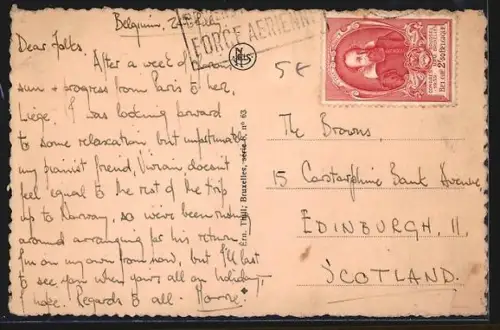 Belgium,
FORCE AERIENNE
Dear Folks,
After a week of
sun & progress from Paris to here,
Liège, I was looking forward
to some relaxation but unfortunately
my pianist friend, Vivian doesn't
feel equal to the rest of the trip
up to Norway, so we've been
around arranging for his return.
I'm on my own from now, but I'll
to see you when yours all on holiday,
I hope. Regards to all -
Ern. Thill, Bruxelles, série 8, n° 63
NELS
5€
BELGIE 2°° BELGIQUE
The Browns,
15 Corstorphine Bank Avenue,
EDINBURGH, 11,
SCOTLAND.